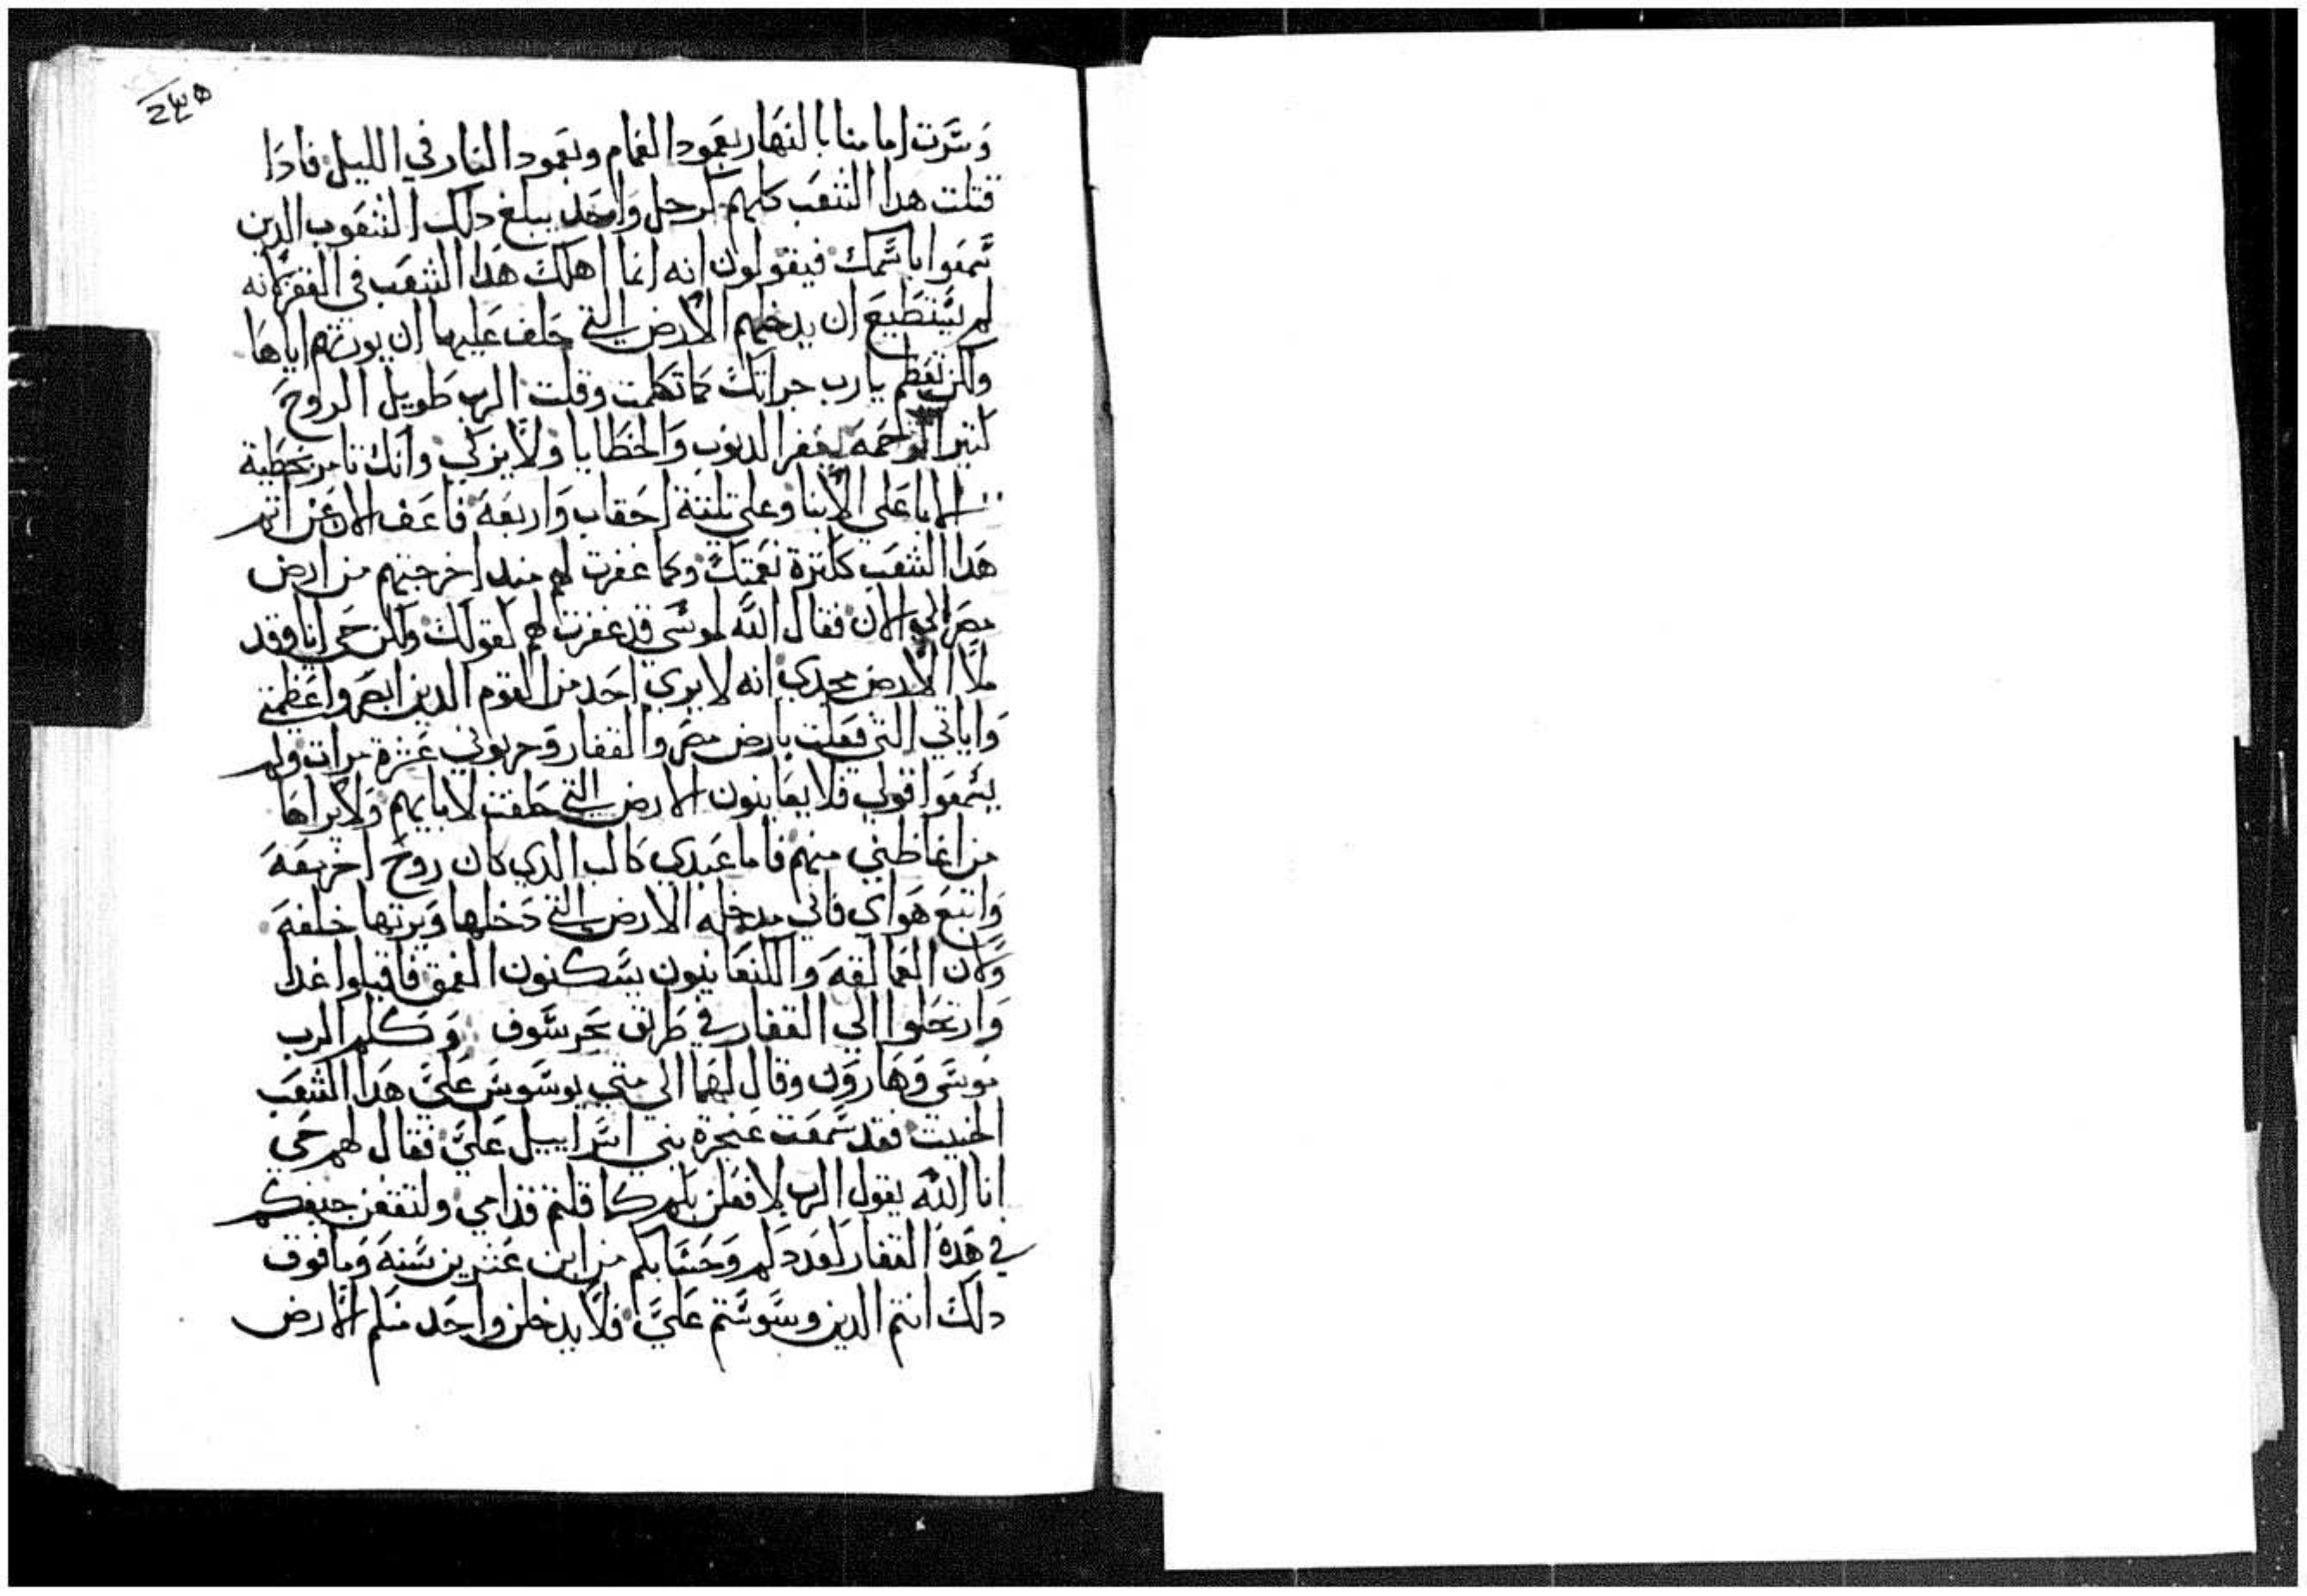 وسرت امامنا بالنهار بعمود الغمام وبعمود النار في الليل فادا
قتلت هدا الشعب كلهم كرجل واحد يبلغ دلك الشعوب الدين
سمعوا باسمك فيقولون انه انما اهلك هدا الشعب في القفر لانه
لم يستطيع ان يدخلهم الارض التي حلف عليها ان يورثهم اياها
ولكن تعظم يارب جراتك كما تكلمت وقلت الرب طويل الروح
كثير الرحمه يغفر الدنوب والخطايا ولا يزكي وانك تامر بخطية
الابا على الابنا وعلى تلتة احقاب واربعة فاعف الان عن اتم
هدا الشعب ككترة نعمتك وكما غفرت لهم مند اخرجتهم من ارض
مصر الي الان فقال الله لموسى قد غفرت لهم لقولك ولكن حي انا وقد
ملا الارض مجدي انه لا يري احد من القوم الدين ابصروا عظمتي
واياتي التي فعلت بارض مصر والقفار وجربوني عشرة مرات ولم
يسمعوا قولي فلا يعاينون الارض التي حلفت لابايهم ولا يراها
من اغاظني منهم فاما عبدي كالب الدي كان روح اخر معه
واتبع هواي فاني مدخله الارض التي دخلها ويرثها خلفه
ولان العمالقه والكنعانيون يسكنون العمق فاقبلوا غدا
وارتحلوا الي القفار في طريق بحر سوف وكلم الرب
موسى وهارون وقال لهما الى متى يوسوس علي هدا الشعب
الخبيت فقد سمعت عنجرة بني اسراييل علي فقال لهم حي
انا الله يقول الرب لافعلن بكم كما قلتم قدامي ولتقعن جيفكم
في هده القفار لعددكم وحسابكم من ابن عشرين سنه وما فوق
دلك انتم الدين وسوستم علي فلا يدخلن واحد منكم الارض